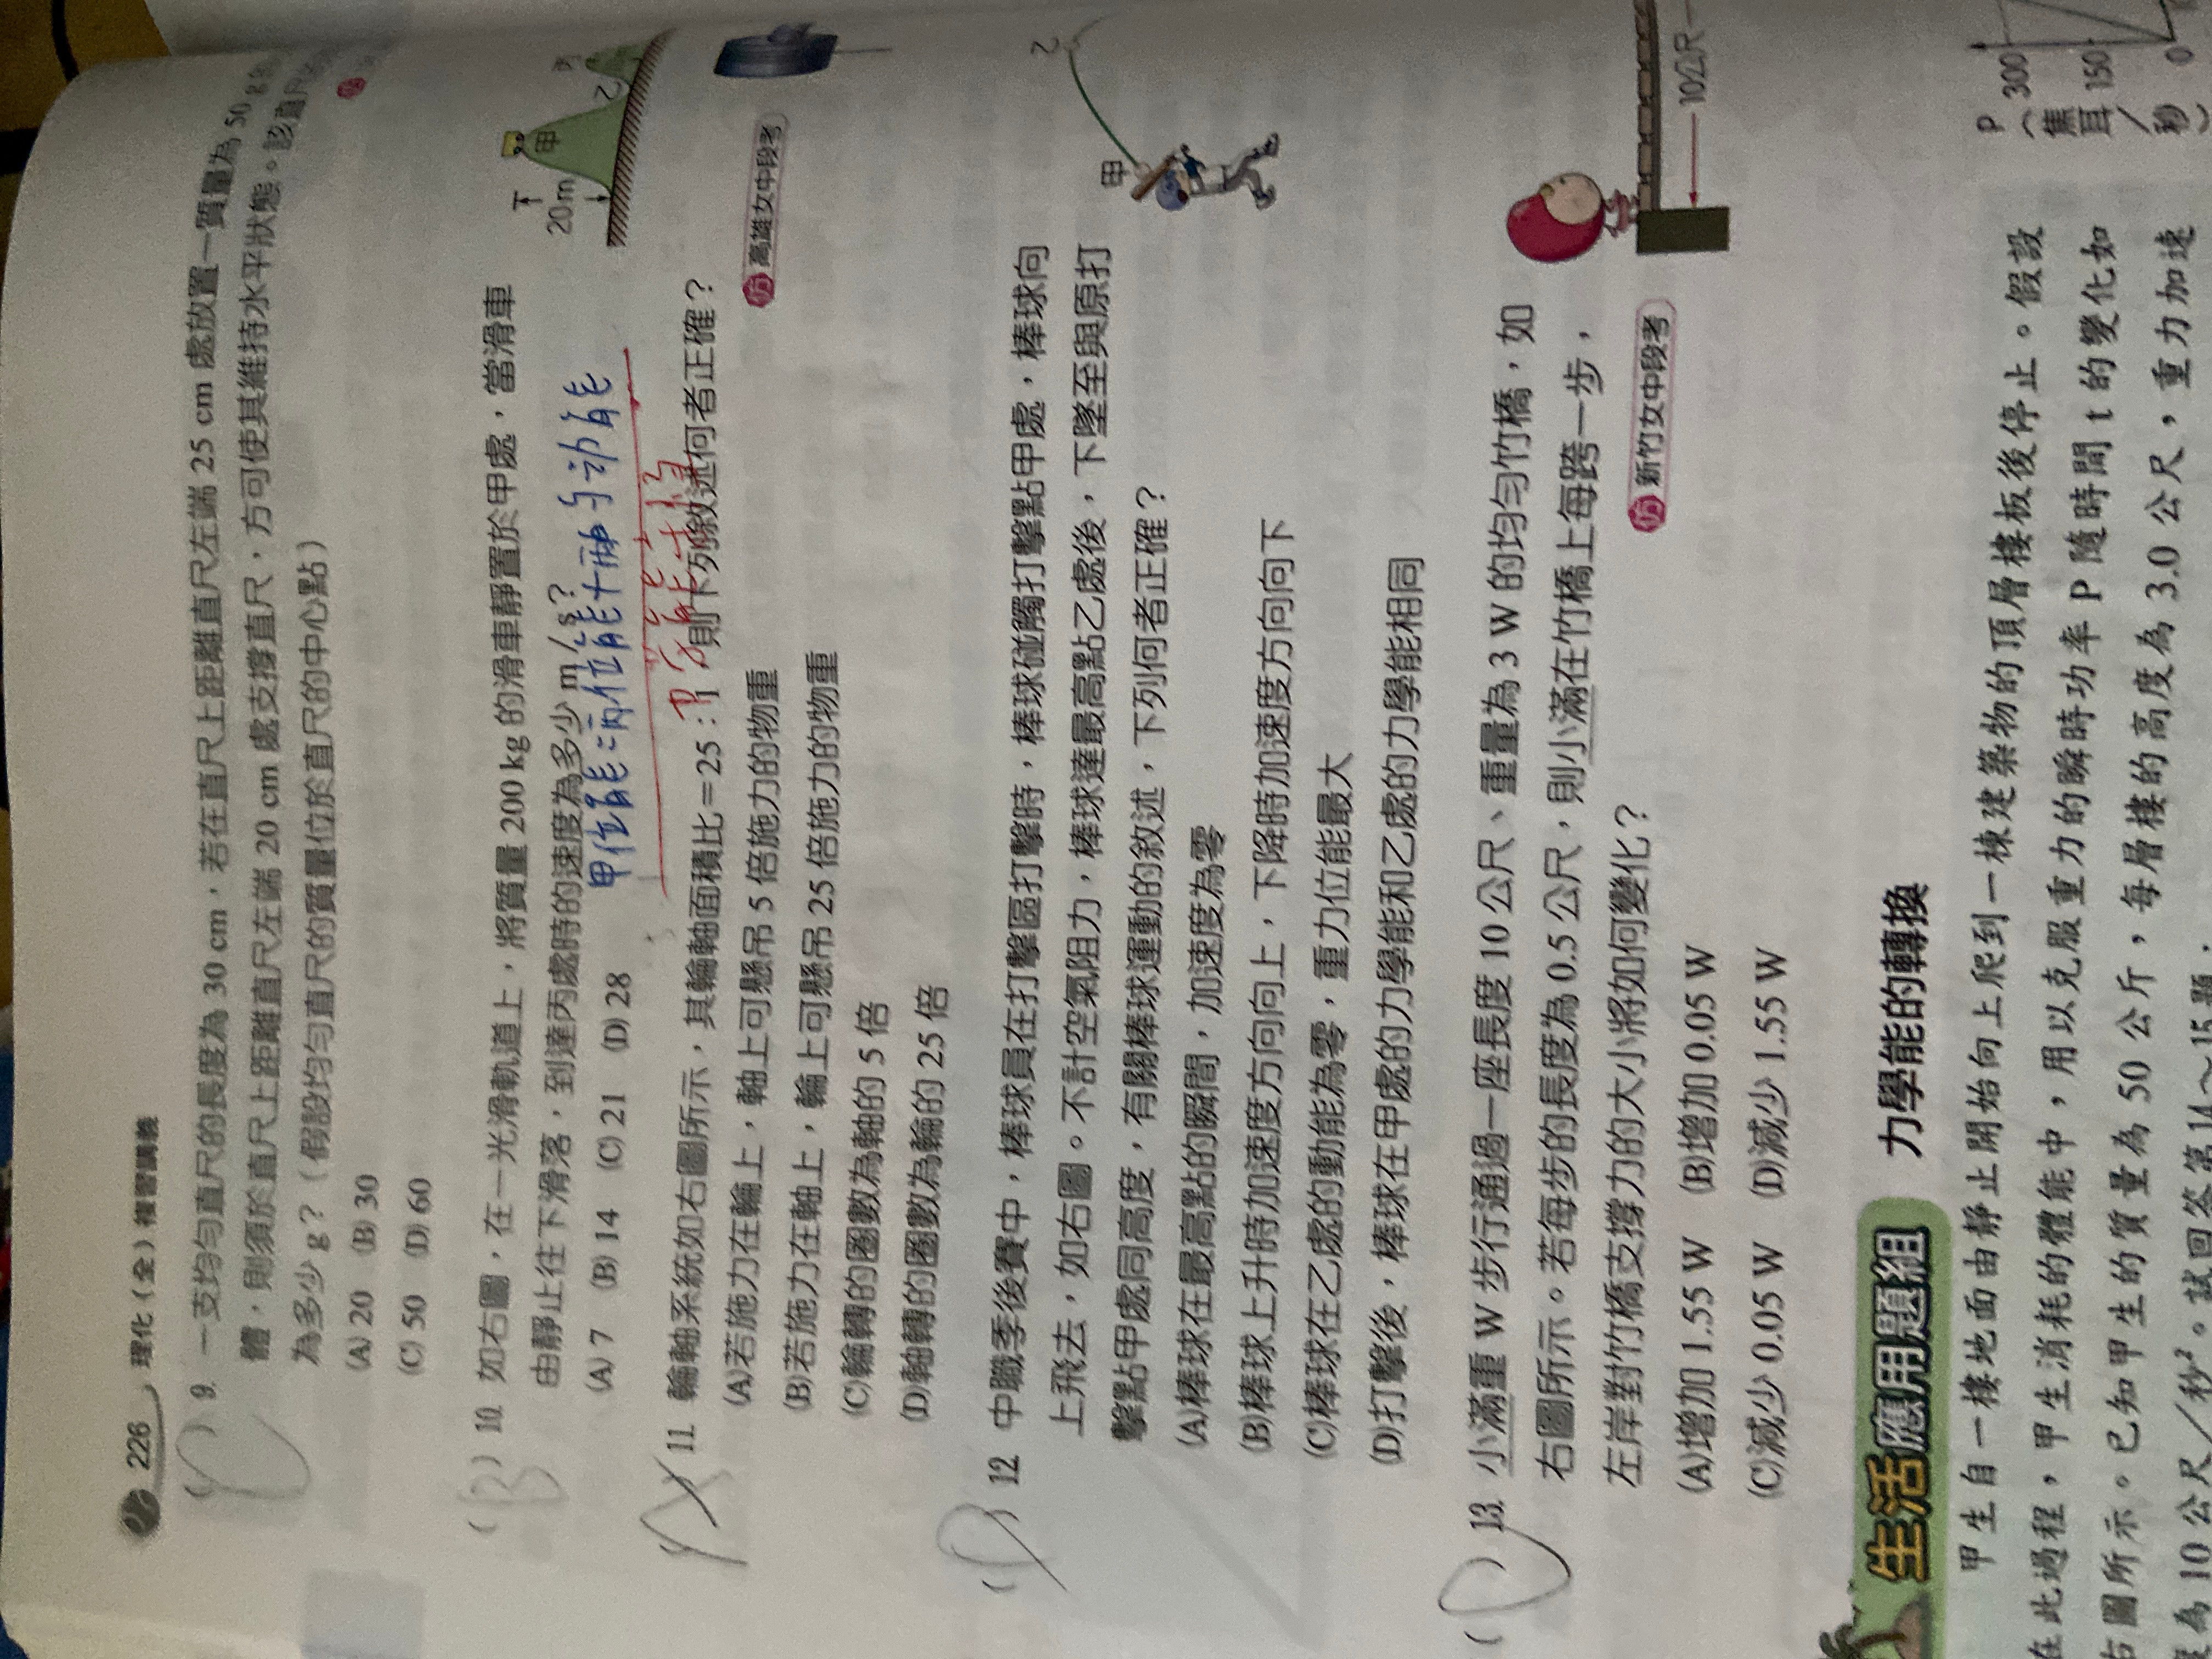 226 理化（全）複習講義
( C ) 9. 一支均勻直尺的長度為 30 cm，若在直尺上距離直尺左端 25 cm 處放置一質量為 50 g
體，則須於直尺上距離直尺左端 20 cm 處支撐直尺，方可使其維持水平狀態。該直尺
為多少 g？（假設均勻直尺的質量位於直尺的中心點）
(A) 20 (B) 30
(C) 50 (D) 60
仿
( B ) 10. 如右圖，在一光滑軌道上，將質量 200 kg 的滑車靜置於甲處，當滑車
由靜止往下滑落，到達丙處時的速度為多少 m/s？
(A) 7 (B) 14 (C) 21 (D) 28
甲位能=丙位能+丙的动能
20 m
甲
乙
丙
( A ) 11. 輪軸系統如右圖所示，其輪軸面積比＝25：1，則下列敘述何者正確？
(A)若施力在輪上，軸上可懸吊 5 倍施力的物重
(B)若施力在軸上，輪上可懸吊 25 倍施力的物重
(C)輪轉的圈數為軸的 5 倍
(D)軸轉的圈數為輪的 25 倍
仿 高雄女中段考
( D ) 12. 中職季後賽中，棒球員在打擊區打擊時，棒球碰觸打擊點甲處，棒球向
上飛去，如右圖。不計空氣阻力，棒球達最高點乙處後，下墜至與原打
擊點甲處同高度，有關棒球運動的敘述，下列何者正確？
(A)棒球在最高點的瞬間，加速度為零
(B)棒球上升時加速度方向向上，下降時加速度方向向下
(C)棒球在乙處的動能為零，重力位能最大
(D)打擊後，棒球在甲處的力學能和乙處的力學能相同
甲
乙
( C ) 13. 小滿重 W 步行通過一座長度 10 公尺、重量為 3 W 的均勻竹橋，如
右圖所示。若每步的長度為 0.5 公尺，則小滿在竹橋上每跨一步，
左岸對竹橋支撐力的大小將如何變化？
(A)增加 1.55 W (B)增加 0.05 W
(C)減少 0.05 W (D)減少 1.55 W
仿 新竹女中段考
10公尺
生活應用題組 力學能的轉換
甲生自一樓地面由靜止開始向上爬到一棟建築物的頂層樓板後停止。假設
在此過程，甲生消耗的體能中，用以克服重力的瞬時功率 P 隨時間 t 的變化如
右圖所示。已知甲生的質量為 50 公斤，每層樓的高度為 3.0 公尺，重力加速
度為 10 公尺／秒²。試回答第 14～15 題：
P（焦耳／秒）
300
150
0